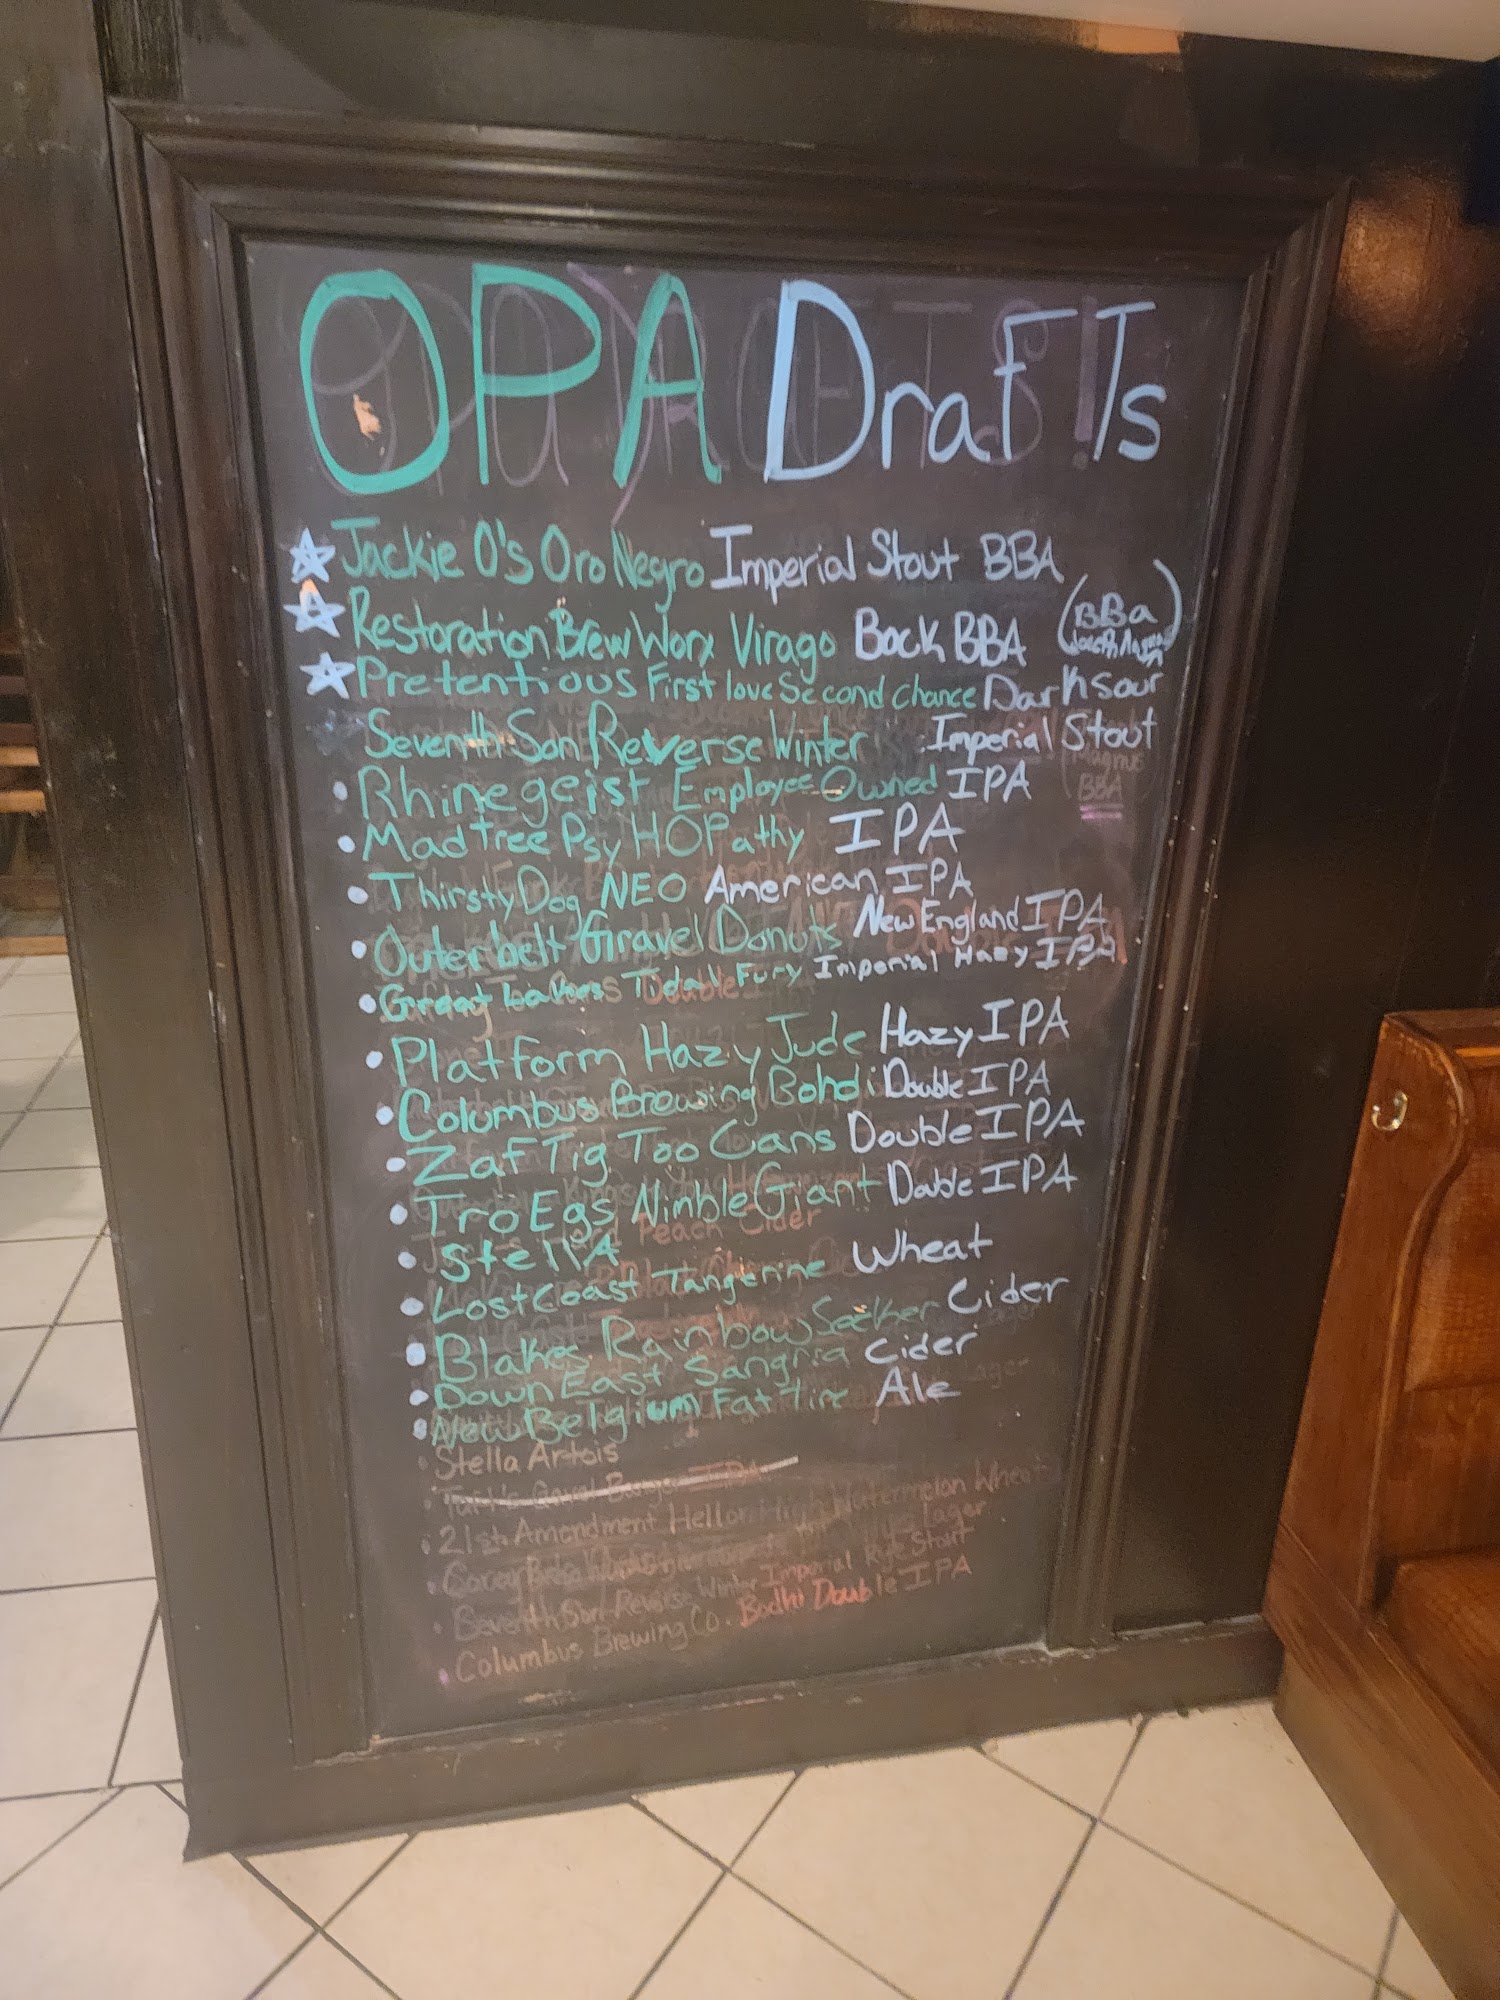 OPA Drafts
Jackie O's Oro Negro Imperial Stout BBA
Restoration Brew Worx Virago Bock BBA (BBa
Pretentious First love Second chance Dark sour
Seventh Son Reverse Winter Imperial Stout
BBA
Rhinegeist Employee Owned IPA
Madtree PsyHOPathy IPA
Thirsty Dog NEO American IPA
Outerbelt Gravel Donuts New England IPA
Great Lakes Tidal Fury Imperial Hazy IPA
Platform Hazy Jude Hazy IPA
Columbus Brewing Bohdi Double IPA
ZafTig Too Cans Double IPA
Tro Egs Nimble Giant Double IPA
Peach Cider
StellA
Lost Coast Tangerine Wheat
Blakes Rainbow Seeker Cider
Down East Sangria Cider
New Belgium Fat Tire Ale
Lager
Stella Artois
21st Amendment Hell or High Watermelon Wheat
Lager
Seventh Son Reverse Winter Imperial Rye Stout
Columbus Brewing Co. Bodhi Double IPA